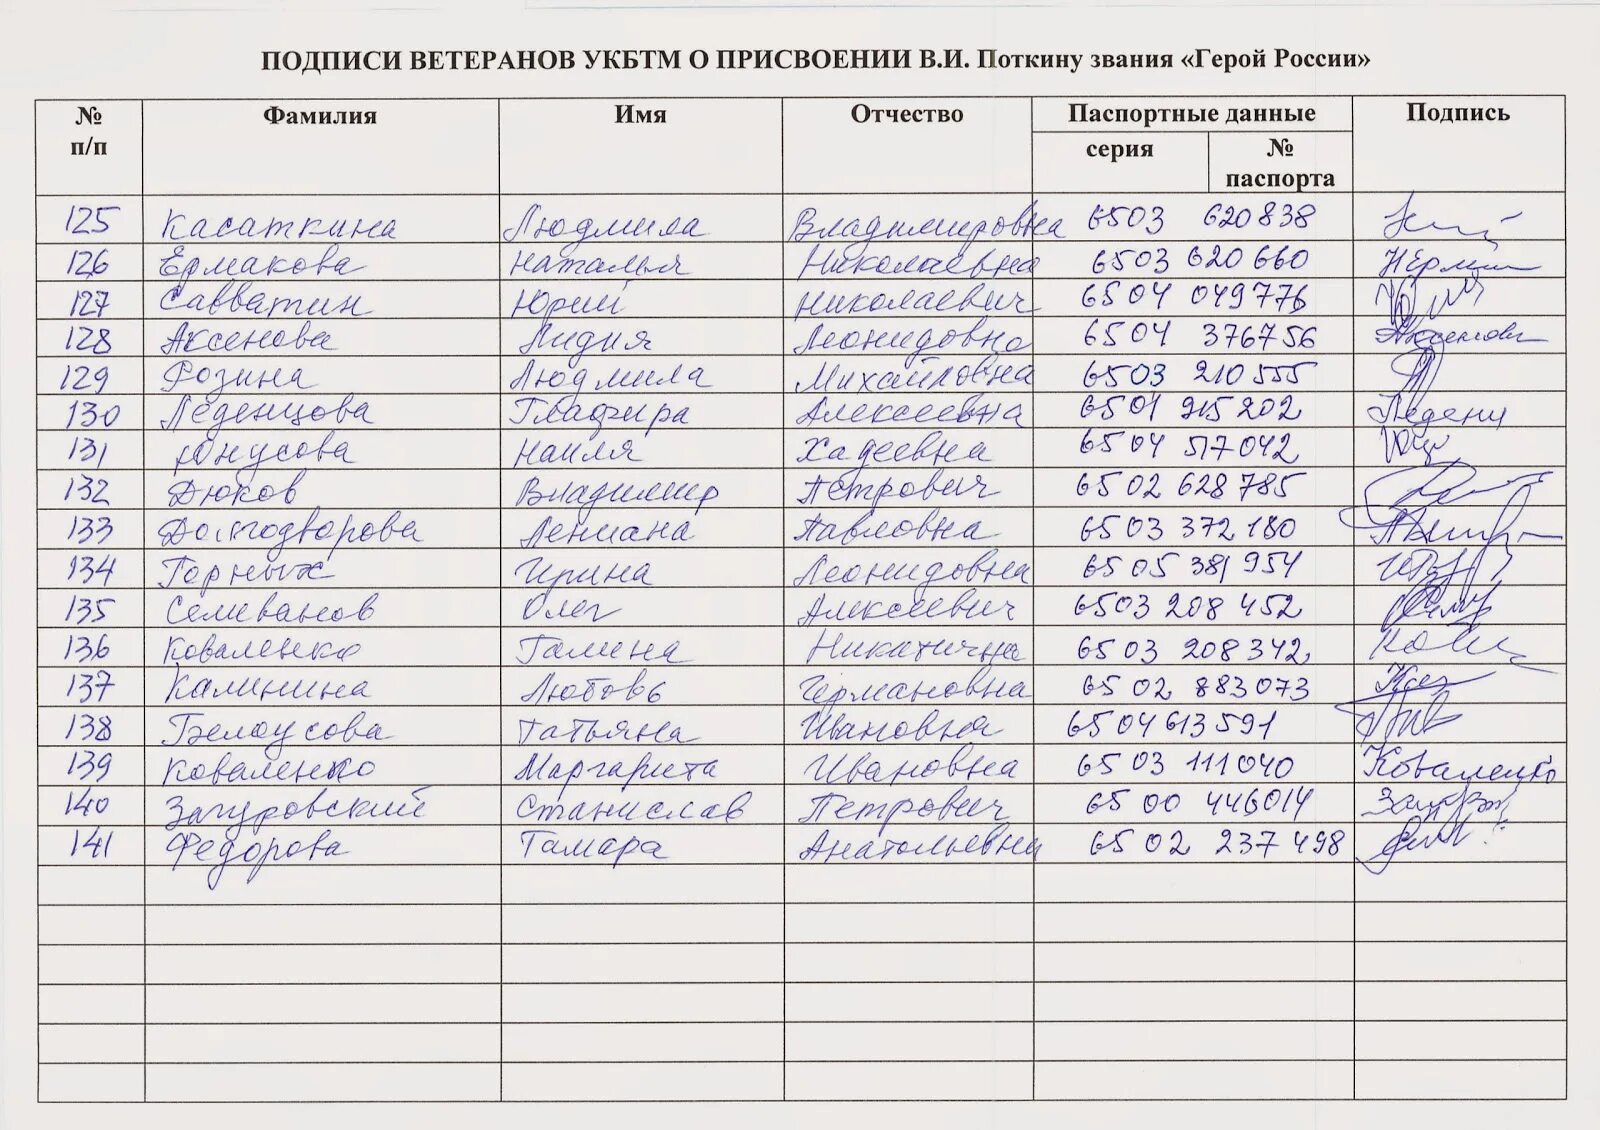 ПОДПИСИ ВЕТЕРАНОВ УКБТМ О ПРИСВОЕНИИ В.И. Поткину звания «Герой России»
№ п/п Фамилия Имя Отчество Паспортные данные Подпись
серия № паспорта
125 Касаткина Людмила Владимировна 6503 620838
126 Ермакова Наталья Николаевна 6503 620660
127 Савватин Юрий Николаевич 6504 049776
128 Аксенова Лидия Леонидовна 6504 376756
129 Розина Людмила Михайловна 6503 210555
130 Леденцова Глафира Алексеевна 6501 915202 Леденц
131 Юнусова Наиля Хадеевна 6504 517042
132 Дюков Владимир Петрович 6502 628785
133 Долгодворова Лениана Павловна 6503 372180
134 Горных Ирина Леонидовна 6505 381954
135 Селиванов Олег Алексеевич 6503 208452
136 Коваленко Галина Никатична 6503 208342
137 Калинина Любовь Германовна 6502 883073
138 Белоусова Татьяна Ивановна 6504 613591
139 Коваленко Маргарита Ивановна 6503 111040 Коваленко
140 Загуровский Станислав Петрович 6500 446014
141 Федорова Тамара Анатольевна 6502 237498